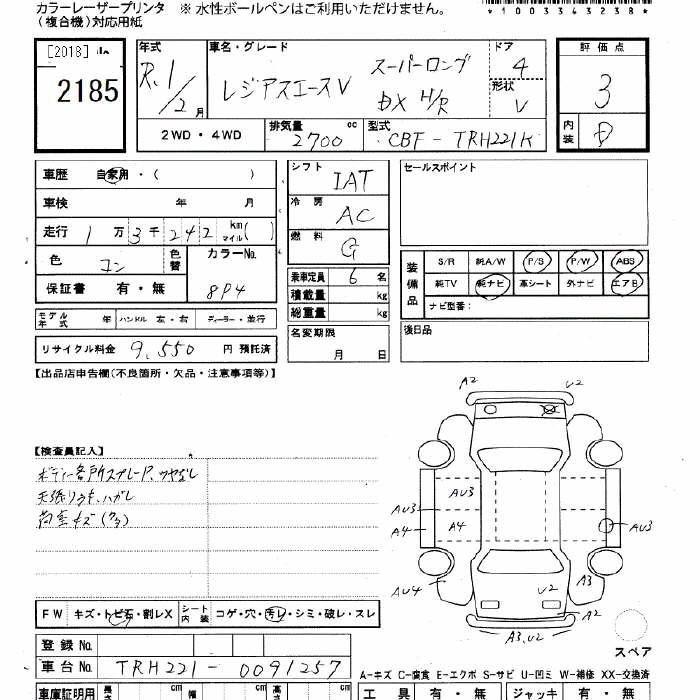 カラーレーザープリンタ ※ 水性ボールペンはご利用いただけません。
(複合機)対応用紙
*100334323 8*
[2018]
2185
年式 R.1/2月
車名・グレード レジアスエースV スーパーロング DX H/R
ドア 4
形状 V
評価点 3
内装 D
2WD ・ 4WD
排気量 2700 cc
型式 CBF - TRH221K
車歴 自家用 ・ ( )
シフト IAT
セールスポイント
車検 年 月
冷房 AC
走行 1万3千242 km マイル( )
燃料 G
色 コン 色替
カラーNo. 8P4
装備品 S/R 純A/W P/S P/W ABS
乗車定員 6 名
保証書 有 ・ 無
純TV 純ナビ 革シート 外ナビ エアB
積載量 kg
ナビ型番：
総重量 kg
モデル年式 年 ハンドル 左・右 ディーラー・並行
名変期限 月 日
後日品
リサイクル料金 9,550 円 預託済
【出品店申告欄(不良箇所・欠品・注意事項等)】
A2 U2
【検査員記入】
ボディー各所スプレーP、ツヤなし
天張りウキ、ハガレ
荷室キズ(クラ)
AU3
AU3 AU3
A4 A4
AU4 U2 A3
A2
A3,U2
FW キズ・トビ石・割レX シート内装 コゲ・穴・汚レ・シミ・破レ・スレ
スペア
登録 No.
車台 No. TRH221-0091257
A－キズ C－腐食 E－エクボ S－サビ U－凹ミ W－補修 XX－交換済
車庫証明用 長さ cm 幅 cm 高さ cm
工具 有 ・ 無 ジャッキ 有 ・ 無